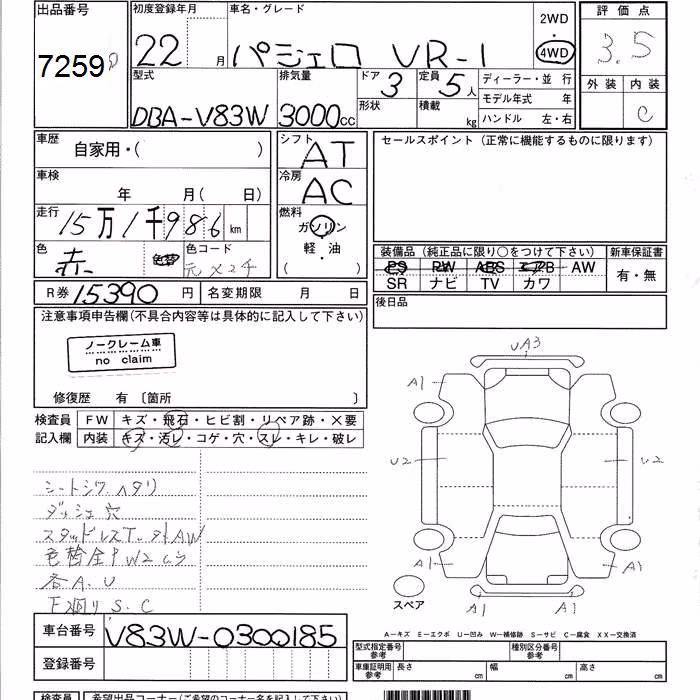 出品番号
7259
初度登録年月
22 月
車名・グレード
パジェロ VR-1
2WD
・
4WD
評価点
3.5
外装 内装
C
型式
DBA-V83W
排気量
3000cc
ドア 3
形状
定員 5人
積載 kg
ディーラー・並 行
モデル年式 年
ハンドル 左・右
車歴
自家用・( )
シフト
AT
セールスポイント (正常に機能するものに限ります)
車検
年 月( 日)
冷房
AC
走行
15万1千986km
燃料
ガソリン
・
軽・油
・
( )
色
赤
色替
色コード
元×2チ
装備品 (純正品に限り○をつけて下さい)
PS PW ABS エアB AW
SR ナビ TV カワ
新車保証書
有・無
R券 15390 円
名変期限 月 日
後日品
注意事項申告欄(不具合内容等は具体的に記入して下さい)
ノークレーム車
no claim
修復歴 有 〔箇所 〕
検査員
記入欄
FW キズ・飛石・ヒビ割・リペア跡・X要
内装 キズ・汚レ・コゲ・穴・スレ・キレ・破レ
シートシワ ヘタリ
ダッシュ穴
スタッドレスT.
AW
色替全
W2
各A.U
F廻りS.C
UA3
A1
A1
U2
U2
A1
A1
A1
A1
スペア
車台番号
V83W-0300185
登録番号
A-キズ E-エクボ U-凹み W-補修跡 S-サビ C-腐食 XX-交換済
型式指定番号
参考
種別区分番号
参考
車庫証明用
参考
長さ cm
幅 cm
高さ cm
検査員
希望出品コーナー(ご希望のコーナー名を記入して下さい)